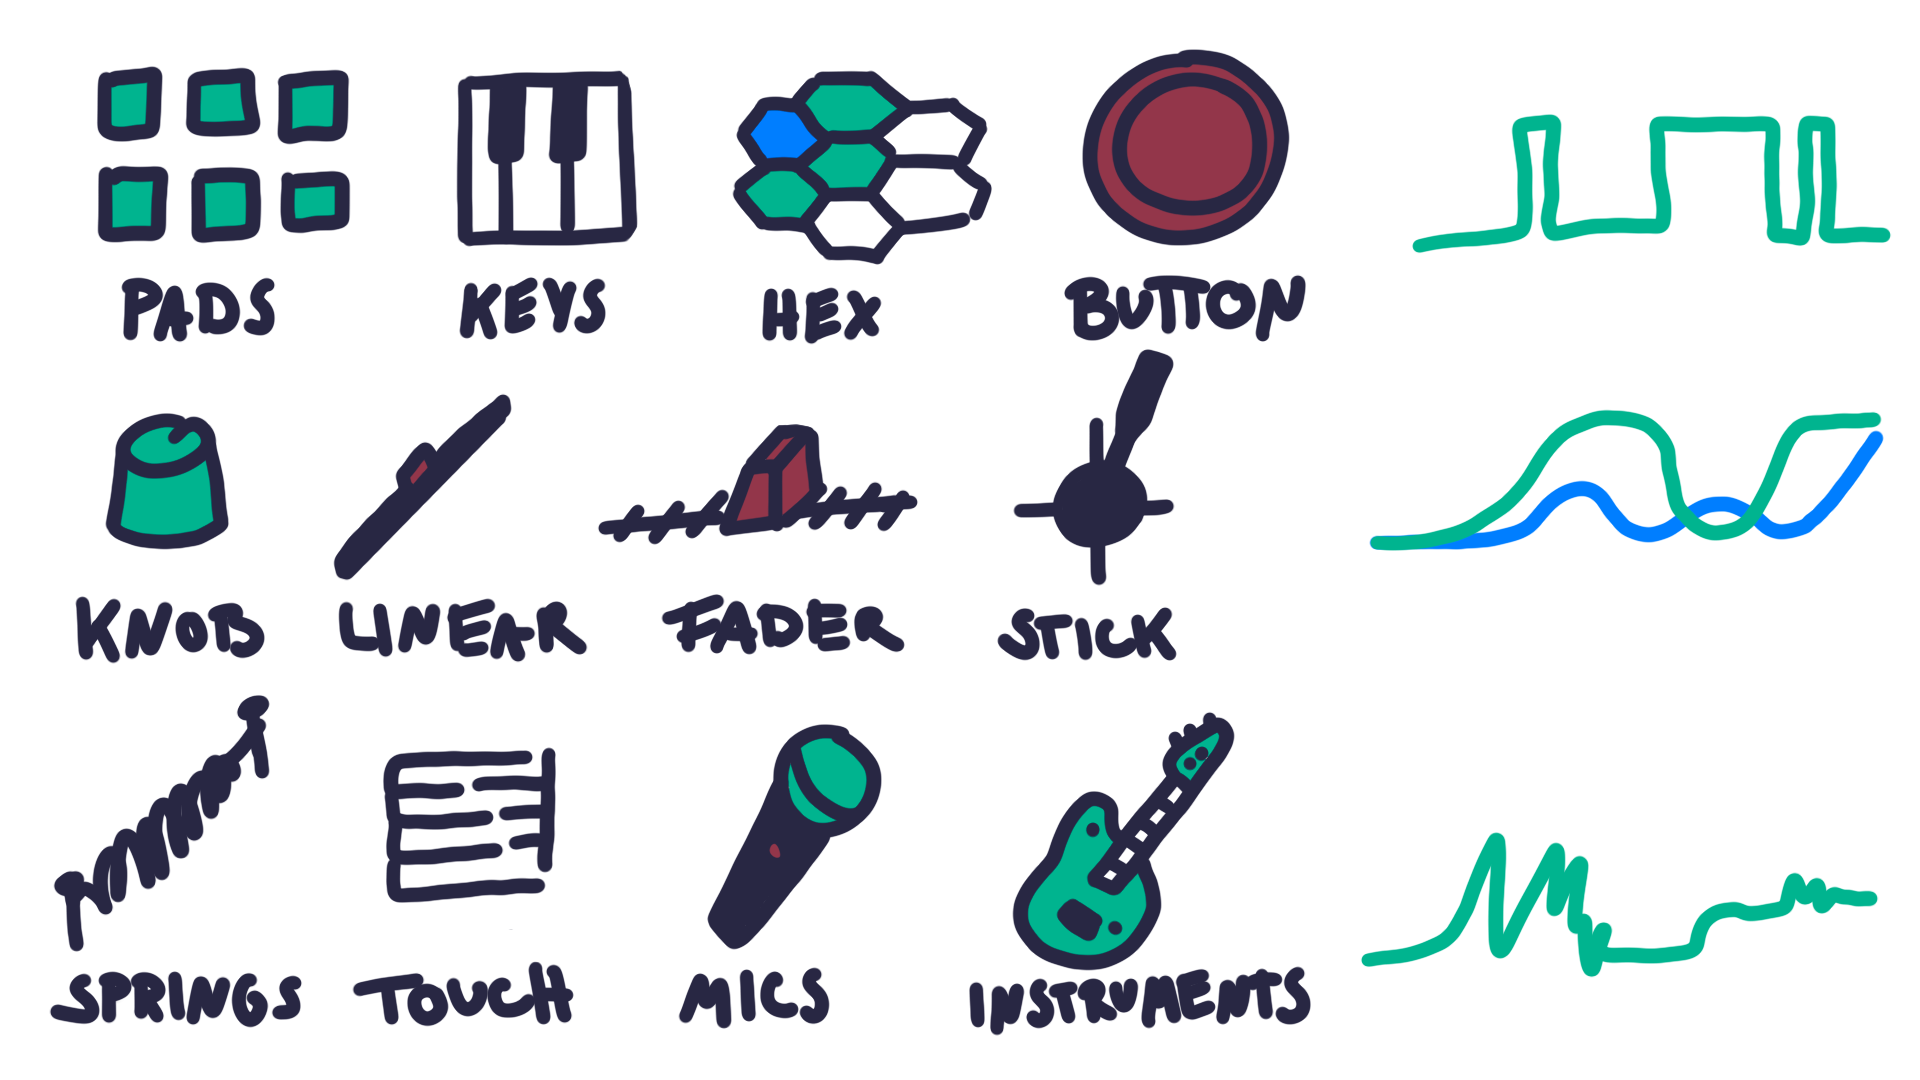 PADS KEYS HEX BUTTON
KNOB LINEAR FADER STICK
SPRINGS TOUCH MICS INSTRUMENTS